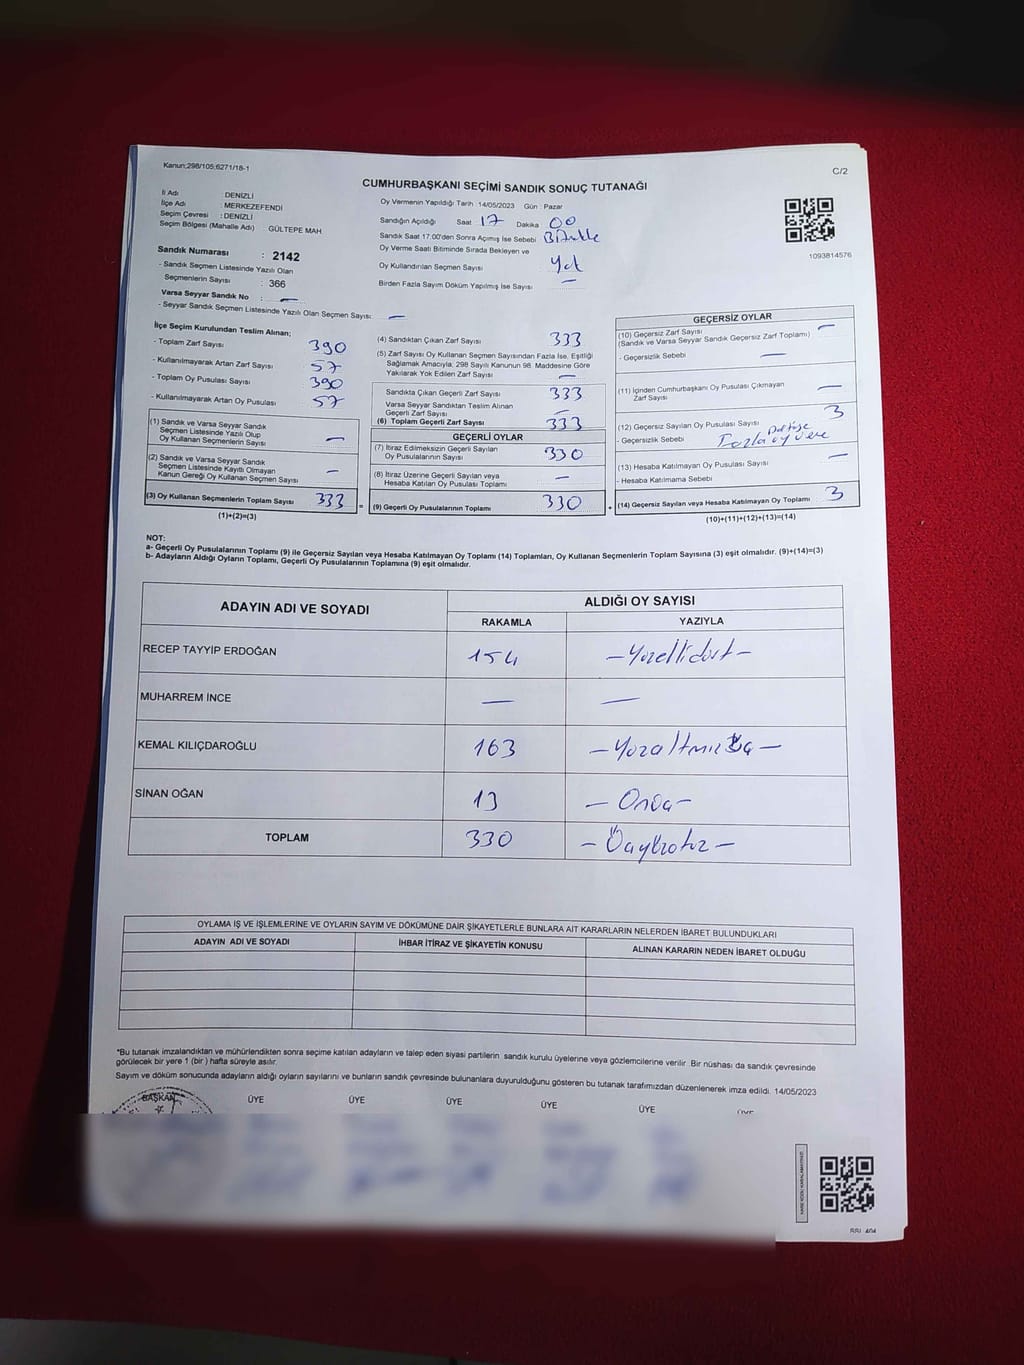 Kanun;298/105;6271/18-1
C/2
CUMHURBAŞKANI SEÇİMİ SANDIK SONUÇ TUTANAĞI
İl Adı DENİZLİ
İlçe Adı MERKEZEFENDİ
Seçim Çevresi : DENİZLİ
Seçim Bölgesi (Mahalle Adı) GÜLTEPE MAH
Sandık Numarası : 2142
- Sandık Seçmen Listesinde Yazılı Olan
Seçmenlerin Sayısı : 366
Varsa Seyyar Sandık No : —
- Seyyar Sandık Seçmen Listesinde Yazılı Olan Seçmen Sayısı: —
Oy Vermenin Yapıldığı Tarih :14/05/2023 Gün : Pazar
Sandığın Açıldığı Saat 17 Dakika 00
Sandık Saat 17:00'den Sonra Açımış İse Sebebi
Oy Verme Saati Bitiminde Sırada Bekleyen ve
Oy Kullandırılan Seçmen Sayısı Yok
Birden Fazla Sayım Döküm Yapılmış İse Sayısı —
1093814576
İlçe Seçim Kurulundan Teslim Alınan;
- Toplam Zarf Sayısı 390
- Kullanılmayarak Artan Zarf Sayısı 57
- Toplam Oy Pusulası Sayısı 390
- Kullanılmayarak Artan Oy Pusulası 57
(1) Sandık ve Varsa Seyyar Sandık
Seçmen Listesinde Yazılı Olup
Oy Kullanan Seçmenlerin Sayısı —
(2) Sandık ve Varsa Seyyar Sandık
Seçmen Listesinde Kayıtlı Olmayan
Kanun Gereği Oy Kullanan Seçmen Sayısı —
(3) Oy Kullanan Seçmenlerin Toplam Sayısı 333
(1)+(2)=(3)
(4) Sandıktan Çıkan Zarf Sayısı 333
(5) Zarf Sayısı Oy Kullanan Seçmen Sayısından Fazla İse, Eşitliği
Sağlamak Amacıyla; 298 Sayılı Kanunun 98. Maddesine Göre
Yakılarak Yok Edilen Zarf Sayısı —
Sandıkta Çıkan Geçerli Zarf Sayısı 333
Varsa Seyyar Sandıktan Teslim Alınan
Geçerli Zarf Sayısı —
(6) Toplam Geçerli Zarf Sayısı 333
GEÇERLİ OYLAR
(7) İtiraz Edilmeksizin Geçerli Sayılan
Oy Pusulalarının Sayısı 330
(8) İtiraz Üzerine Geçerli Sayılan veya
Hesaba Katılan Oy Pusulası Toplamı —
= (9) Geçerli Oy Pusulalarının Toplamı 330
GEÇERSİZ OYLAR
(10) Geçersiz Zarf Sayısı —
(Sandık ve Varsa Seyyar Sandık Geçersiz Zarf Toplamı)
- Geçersizlik Sebebi —
(11) İçinden Cumhurbaşkanı Oy Pusulası Çıkmayan
Zarf Sayısı —
(12) Geçersiz Sayılan Oy Pusulası Sayısı 3
- Geçersizlik Sebebi Fazla oy
(13) Hesaba Katılmayan Oy Pusulası Sayısı —
- Hesaba Katılmama Sebebi
+ (14) Geçersiz Sayılan veya Hesaba Katılmayan Oy Toplamı 3
(10)+(11)+(12)+(13)=(14)
NOT:
a- Geçerli Oy Pusulalarının Toplamı (9) ile Geçersiz Sayılan veya Hesaba Katılmayan Oy Toplamı (14) Toplamları, Oy Kullanan Seçmenlerin Toplam Sayısına (3) eşit olmalıdır. (9)+(14)=(3)
b- Adayların Aldığı Oyların Toplamı, Geçerli Oy Pusulalarının Toplamına (9) eşit olmalıdır.
ADAYIN ADI VE SOYADI ALDIĞI OY SAYISI
RAKAMLA YAZIYLA
RECEP TAYYİP ERDOĞAN 154 — Yüzellidört —
MUHARREM İNCE — —
KEMAL KILIÇDAROĞLU 163 — Yüzaltmışüç —
SİNAN OĞAN 13 — Onüç —
TOPLAM 330 — Üçyüzotuz —
OYLAMA İŞ VE İŞLEMLERİNE VE OYLARIN SAYIM VE DÖKÜMÜNE DAİR ŞİKAYETLERLE BUNLARA AİT KARARLARIN NELERDEN İBARET BULUNDUKLARI
ADAYIN ADI VE SOYADI İHBAR İTİRAZ VE ŞİKAYETİN KONUSU ALINAN KARARIN NEDEN İBARET OLDUĞU
*Bu tutanak imzalandıktan ve mühürlendikten sonra seçime katılan adayların ve talep eden siyasi partilerin sandık kurulu üyelerine veya gözlemcilerine verilir. Bir nüshası da sandık çevresinde
görülecek bir yere 1 (bir ) hafta süreyle asılır.
Sayım ve döküm sonucunda adayların aldığı oyların sayılarını ve bunların sandık çevresinde bulunanlara duyurulduğunu gösteren bu tutanak tarafımızdan düzenlenerek imza edildi. 14/05/2023
BAŞKAN ÜYE ÜYE ÜYE ÜYE ÜYE ÜYE